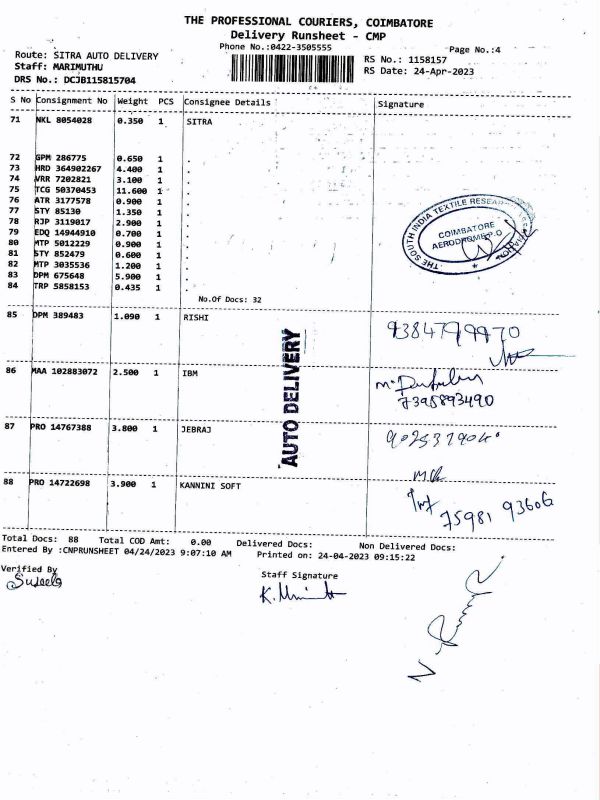 THE PROFESSIONAL COURIERS, COIMBATORE
Delivery Runsheet - CMP
Phone No.:0422-3505555
Page No.:4
Route: SITRA AUTO DELIVERY
Staff: MARIMUTHU
DRS No.: DCJB115815704
RS No.: 1158157
RS Date: 24-Apr-2023
S No Consignment No Weight PCS Consignee Details Signature
71 NKL 8054028 0.350 1 SITRA
72 GPM 286775 0.650 1 .
73 HRD 364902267 4.400 1 .
74 VRR 7202821 3.100 1 .
75 TCG 50370453 11.600 1 .
76 ATR 3177578 0.900 1 .
77 STY 85130 1.350 1 .
78 RJP 3119017 2.900 1 .
79 EDQ 14944910 0.700 1 .
80 MTP 5012229 0.900 1 .
81 STY 852479 0.600 1 .
82 MTP 3035536 1.200 1 .
83 DPM 675648 5.900 1 .
84 TRP 5858153 0.435 1 .
THE SOUTH INDIA TEXTILE RESEARCH ASSOCIATION
COIMBATORE
AERODROME P.O
No.Of Docs: 32
85 DPM 389483 1.090 1 RISHI
9384799970
86 MAA 102883072 2.500 1 IBM
7395893490
AUTO DELIVERY
87 PRO 14767388 3.800 1 JEBRAJ
88 PRO 14722698 3.900 1 KANNINI SOFT
75981 93606
Total Docs: 88 Total COD Amt: 0.00 Delivered Docs: Non Delivered Docs:
Entered By :CNPRUNSHEET 04/24/2023 9:07:10 AM Printed on: 24-04-2023 09:15:22
Verified By
Staff Signature